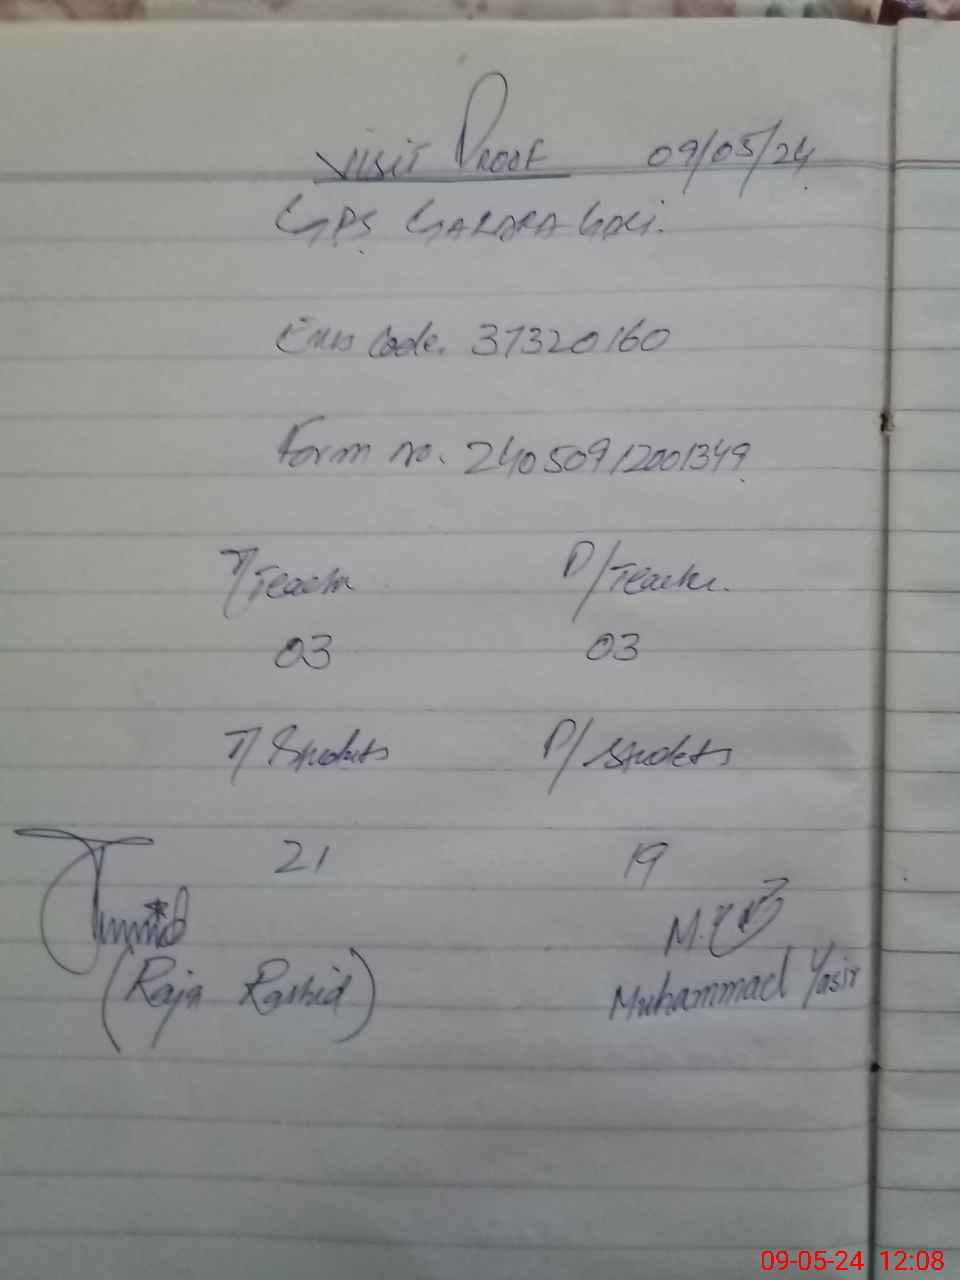 Visit Proof 09/05/24
GPS GARARA GALI.
Emis Code. 37320160
Form no. 24050912001349
T/Teacher P/Teacher.
03 03
T/Students P/students
21 19
(Raja Rashid)
Muhammad Yasir
09-05-24 12:08